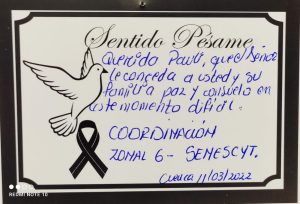 Sentido Pésame
Querido Pavo, que el Señor
le conceda a usted y su
familia paz y consuelo en
este momento difícil.
COORDINACIÓN
ZONAL 6 - SENESCYT.
Cuenca 11/03/2022
REDMI NOTE 10